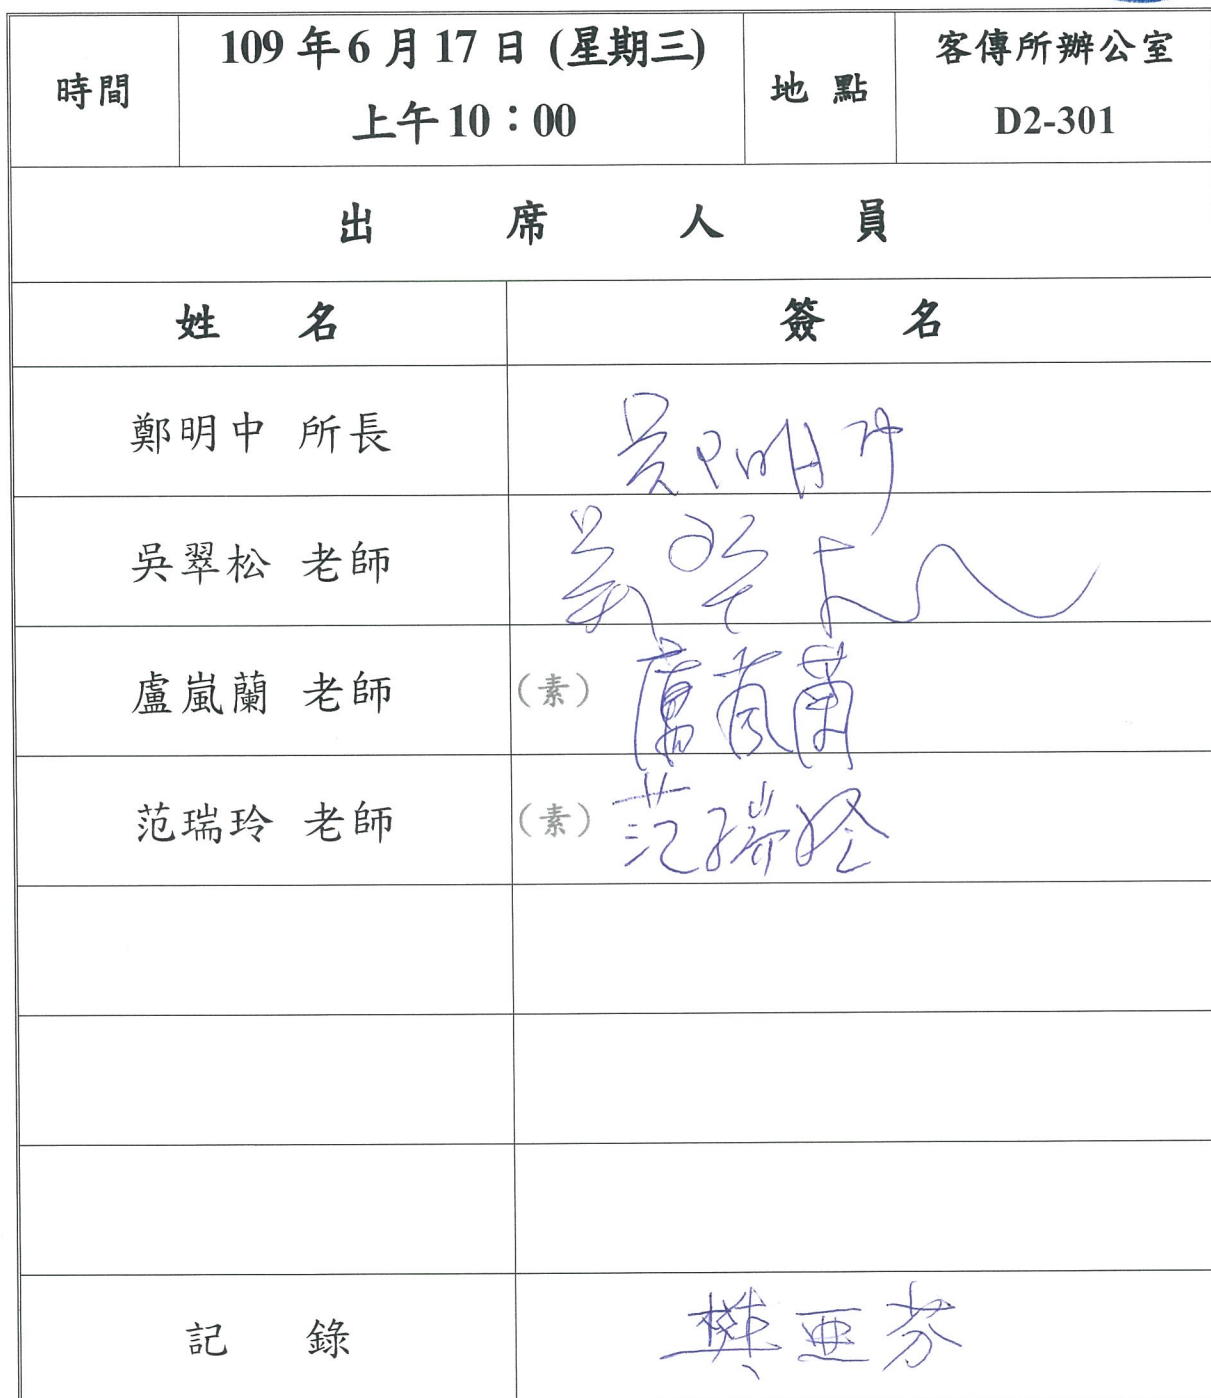 時間
109 年 6 月 17 日 (星期三)
上午 10：00
地 點
客傳所辦公室
D2-301
出 席 人 員
姓 名
簽 名
鄭明中 所長
鄭明中
吳翠松 老師
吳翠松
盧嵐蘭 老師
(素)
盧嵐蘭
范瑞玲 老師
(素)
范瑞玲
記 錄
樊亜芬